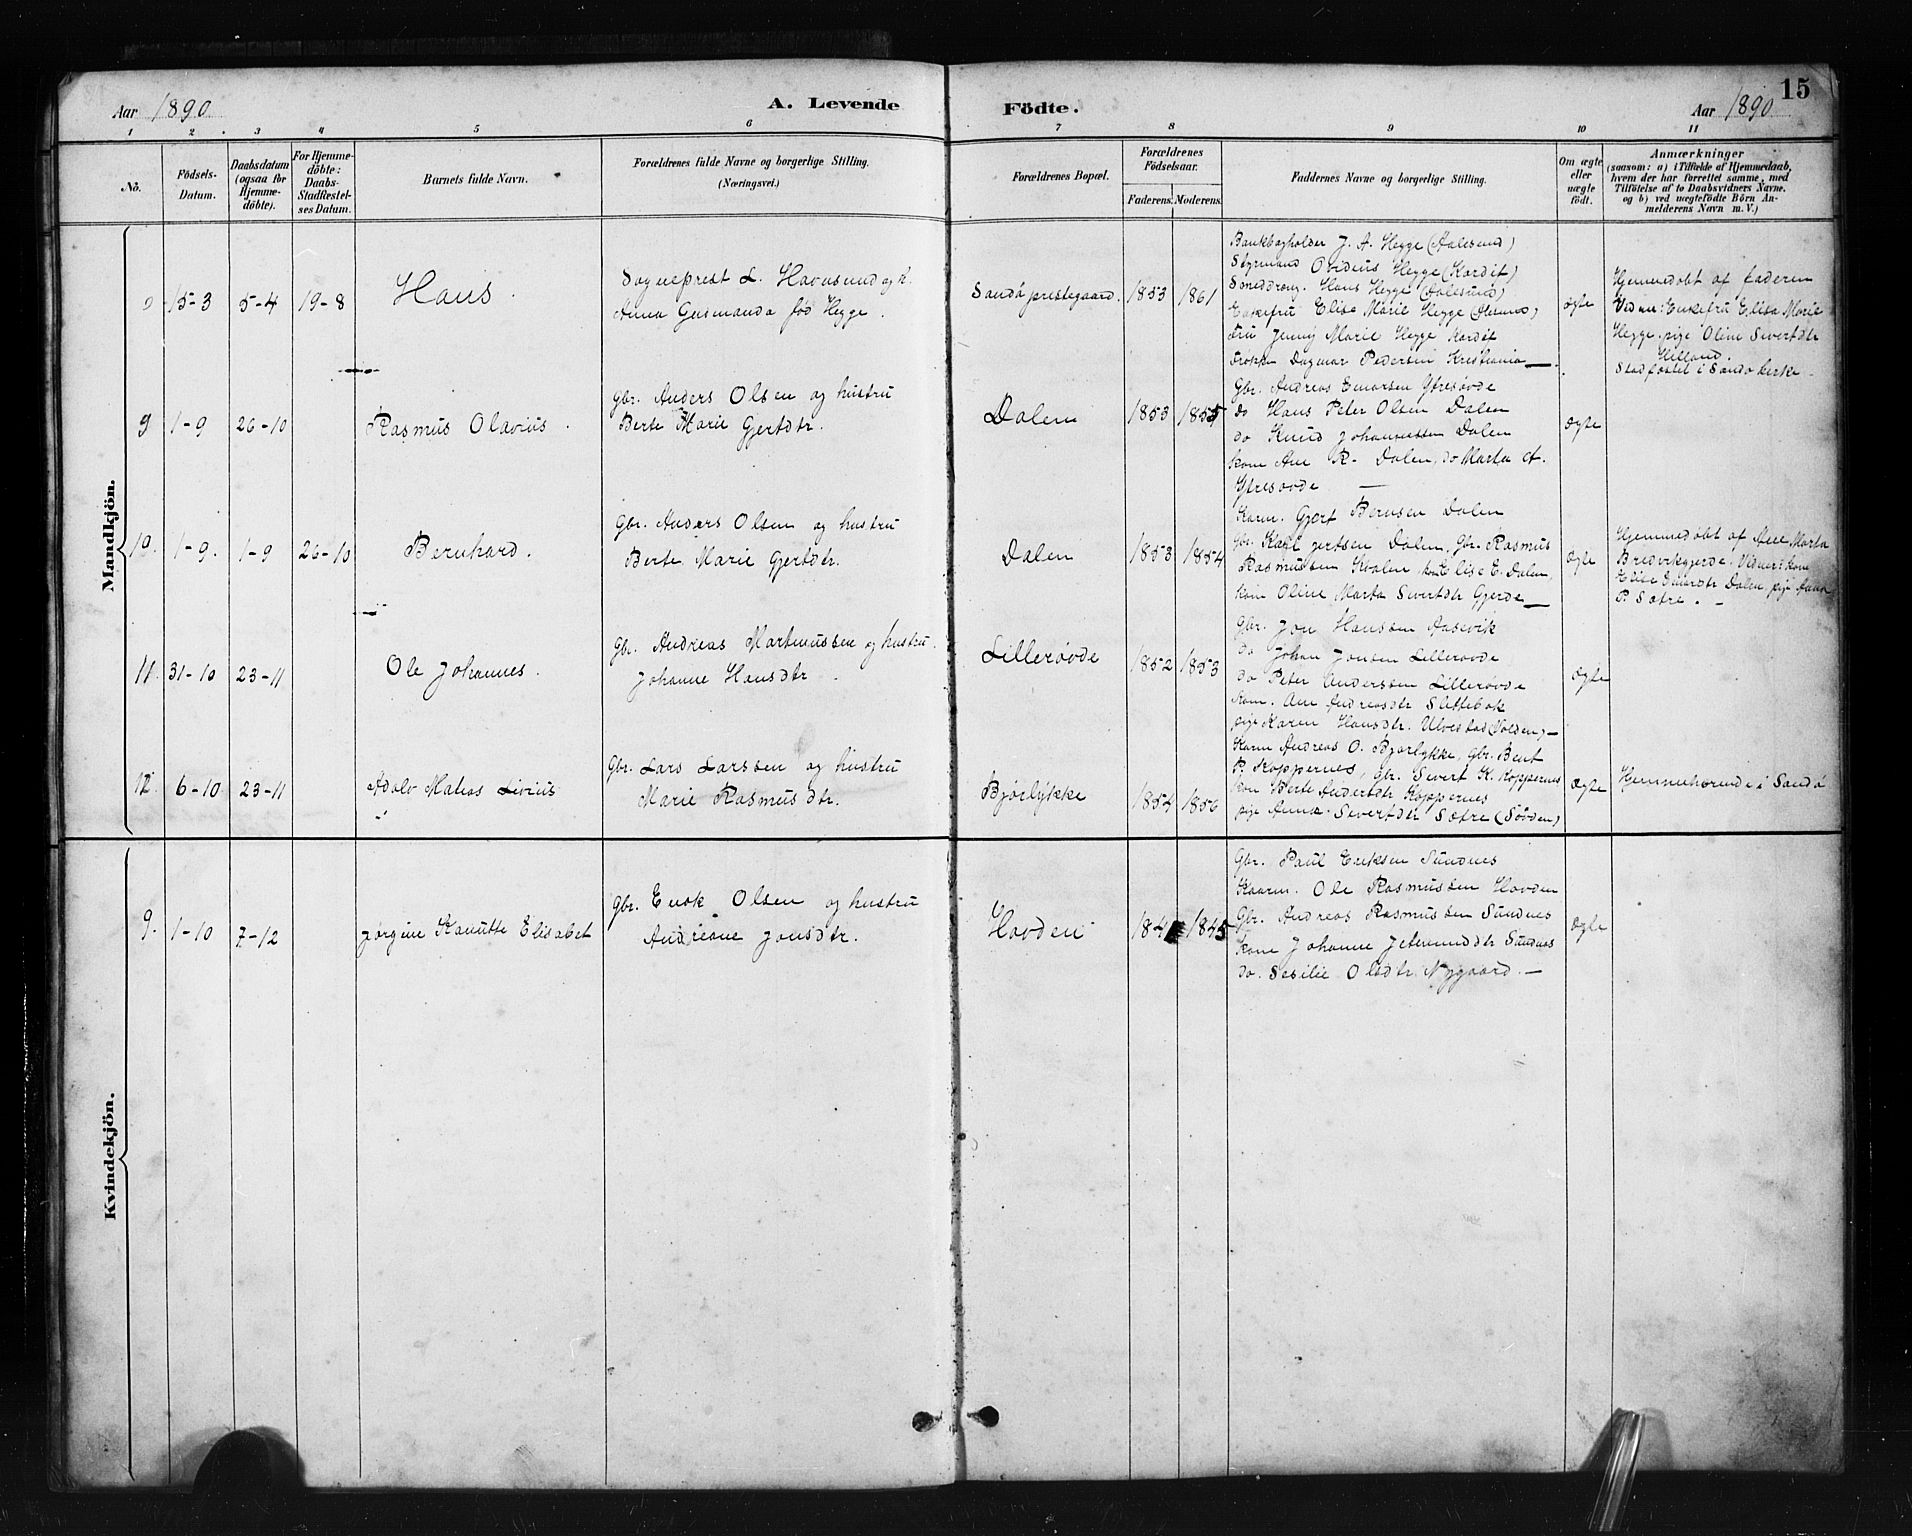 15
Aar 1890
A. Levende
Födte.
Aar 1890
1 2 3 4 5 6 7 8 9 10 11
No.
Födsels-
Datum.
Daabsdatum
(ogsaa for
Hjemme-
döbte).
For Hjemme-
döbte:
Daabs-
Stadfæstel-
ses Datum.
Barnets fulde Navn.
Forældrenes fulde Navne og borgerlige Stilling.
(Næringsvei.)
Forældrenes Bopæl.
Forældrenes
Födselsaar.
Faderens. Moderens.
Faddernes Navne og borgerlige Stilling.
Om ægte
eller
uægte
födt.
Anmærkninger
(saasom: a) i Tilfælde af Hjemmedaab,
hvem der har forrettet samme, med
Tilföielse af to Daabsvidners Navne,
og b) ved uægtefödte Börn An-
melderens Navn m. V.)
Mandkjön.
15-3 5-4 19-8
Hans.
Sogneprest L. Havnsund og h.
Anna Gusmanda fød Hegge.
Sandø prestegaard. 1853 1861
Bankbogholder J. A. Hegge (Aalesund)
Styrmand Ovidius Hegge (Hardit)
Hans Hegge (Aalesund)
Enkefru Elise Marie Hegge
Fru Jenny Marie Hegge Hardit
Frøken Dagmar Pedersen Kristiania
ægte
Hjemmedøbt af faderen
Vidner: Enkefru Elisa Marie
Hegge, pige Oline Sivertdtr
Stadfæstet i Sandø kirke
9 1-9 26-10
Rasmus Olavius.
Gbr. Anders Olsen og hustru
Berte Marie Gjertdtr.
Dalen 1853 1855
Gbr. Andreas Ytresøvde
do Hans Peter Olsen Dalen
do Knud Johannessen Dalen
kone Ane R. Dalen, do Marta A.
Ytresøvde
ægte
10. 1-9. 1-9 26-10
Bernhard.
Gbr. Anders Olsen og hustru
Berte Marie Gjertdtr.
Dalen 1853 1854
Gjert Berntsen Dalen
Gbr. Karl Gjertsen Dalen. Gbr. Rasmus
Rasmussen Kvalen, kone Elise E. Dalen,
kone Oline Marta Sivertdtr Gjerde
ægte
Hjemmedøbt af Ane Marta
Bredvikgjerde. Vidner: kone
Elise Dalen, pige Anna
P. Sætre.
11. 31-10 23-11
Ole Johannes.
Gbr. Andreas Martinussen og hustru
Johanne Hansdtr
Lillerøvde 1852 1853
Gbr. Jon Hanssen Aasevik
do Johan Jonsen Lillerøvde
do Peter Anderssen Lillerøvde
Kone. Ane Andreasdtr Slettebak
pige Karen Hansdtr. Ulvestad (Volden)
ægte
12. 6-10 23-11
Adolv Matias Livius
Gbr. Lars Larssen og hustru
Marie Rasmusdtr.
Bjørlykke 1854 1856
Andreas O. Bjørlykke, Gbr. Bent
P. Koppernes, Gbr. Sivert K. Koppernes
kone Berte Koppernes
pige Anna Sivertdtr Sætre (Søvden)
ægte
Hjemmehørende i Sandø
Kvindekjön.
9. 1-10 7-12
Jørgine Kanutte Elisabet
Gbr. Enok Olsen og hustru
Andreane Jonsdtr.
Hovden 1845
Gbr. Paul Eriksen Sundnes
Ole Rasmussen Hovden
Gbr. Andreas Rasmussen Sundnes
kone Johanne Sundnes
do. Sesilie Olsdtr Nygaard.
ægte